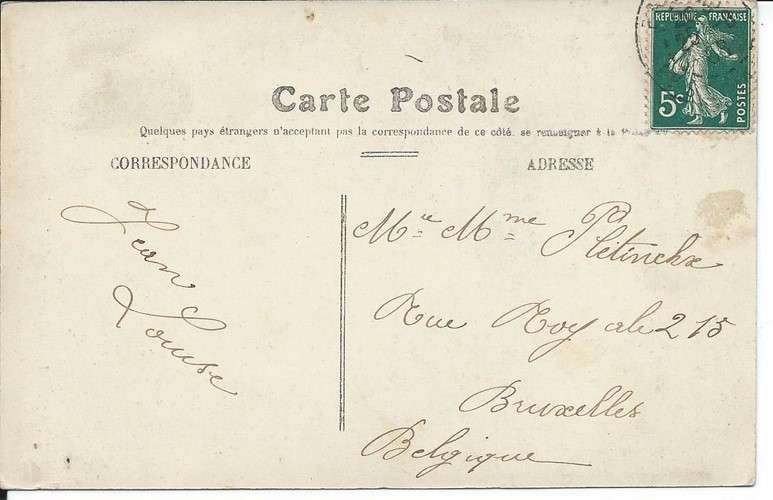 RÉPUBLIQUE FRANÇAISE
5c
POSTES
Carte Postale
Quelques pays étrangers n'acceptant pas la correspondance de ce côté, se renseigner à la
CORRESPONDANCE
ADRESSE
Jean
Louise
Mr Mme Pletinckx
Rue Royale 215
Bruxelles
Belgique